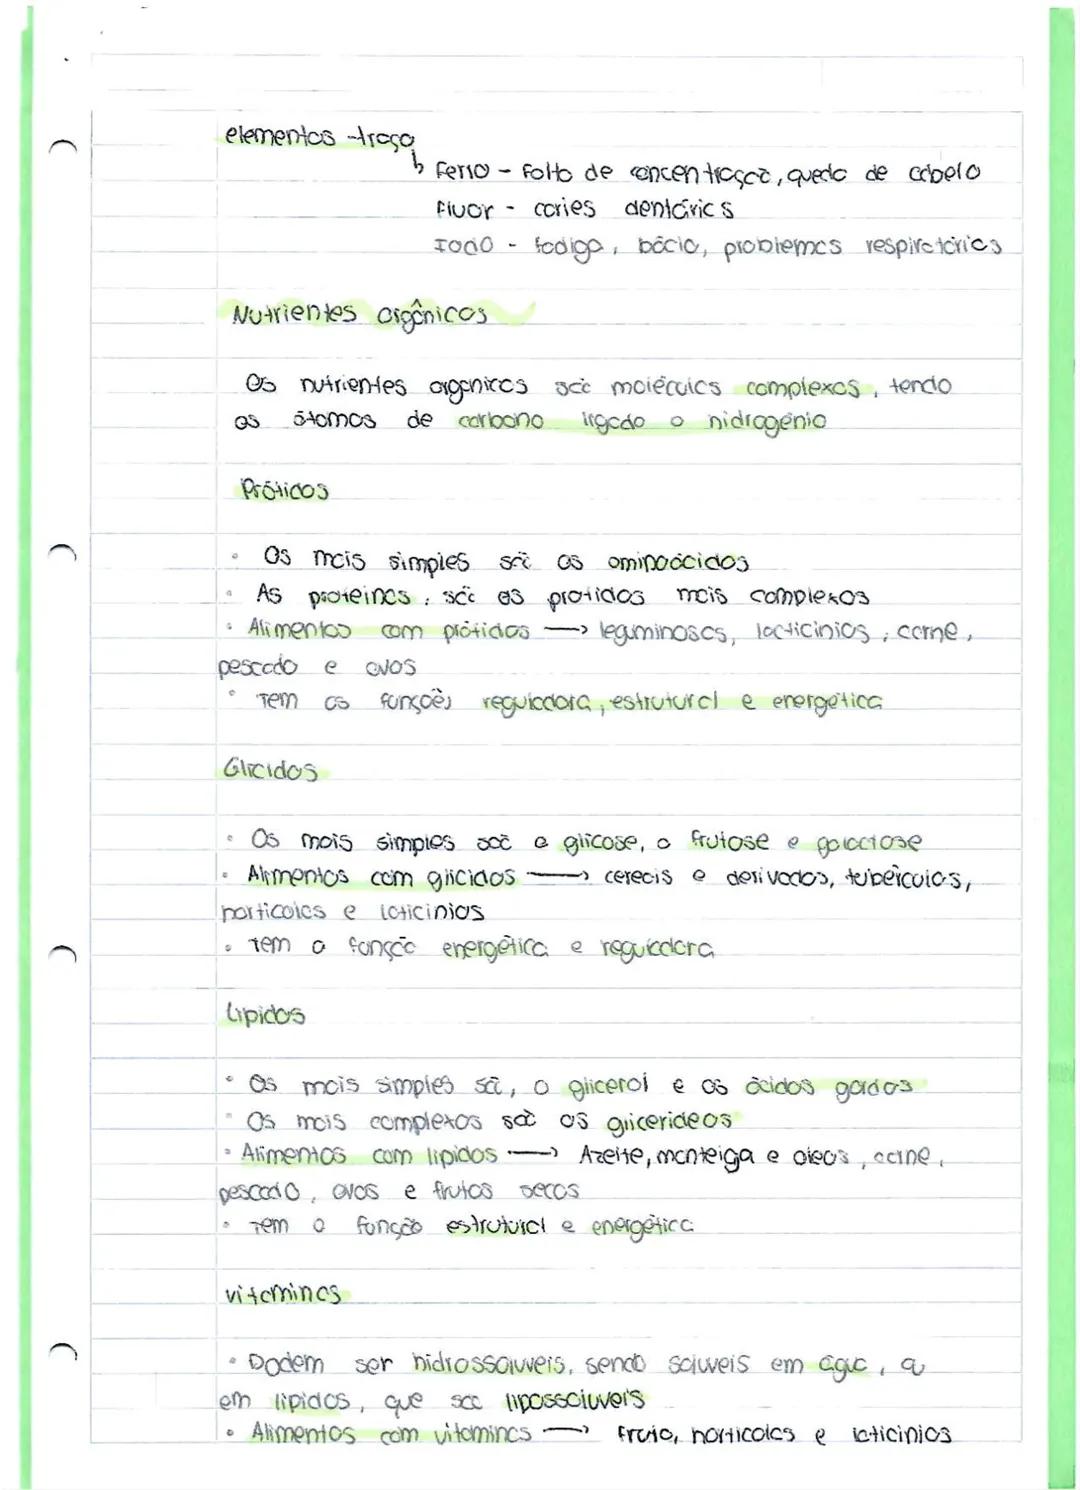 elementos-traço
↳ Ferro - Falta de concentração, queda de cabelo
Fluor - cáries dentárias
Iodo - fadiga, bócio, problemas respiratórios
Nutrientes orgânicos
Os nutrientes orgânicos são moléculas complexas, tendo
os átomos de carbono ligado o hidrogénio
Prótidos
• Os mais simples são os aminoácidos
• As proteínas, são os protidos mais complexos
• Alimentos com prótidos → leguminosas, lacticinios, carne,
pescado e ovos
• Tem as funções reguladora, estrutural e energética
Glicidos
• Os mais simples são a glicose, a frutose e galactose
• Alimentos com glicidos → cereais e derivados, tubérculos,
horticolas e laticinios
• Tem a função energética e reguladora
Lipidos
• Os mais simples são, o glicerol e os ácidos gordos
• Os mais complexos são os glicerideos
• Alimentos com lipidos → Azeite, manteiga e oleos, carne,
pescado, ovos e frutos secos
• Tem a função estrutural e energética
vitaminas
• Podem ser hidrossoluveis, sendo soluveis em água, ou
em lipidos, que são lipossoluveis
• Alimentos com vitaminas → fruta, horticolas e laticinios